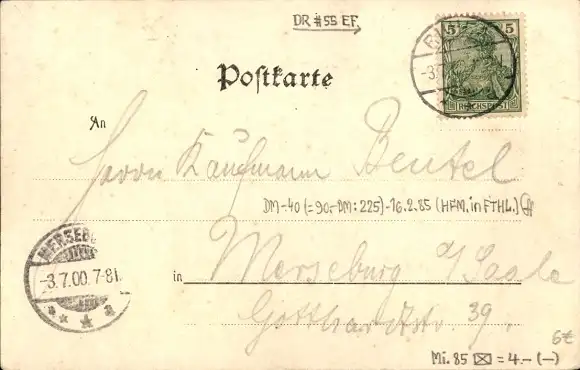 DR #55 EF.
5 5
REICHSPOST
Postkarte
An
Herrn Kaufmann Beutel
DM-40 (=90.-DM:225)-16.2.85 (HFM. in FTHL.)
MERSEB
-3.7.00.7-8
in Merseburg a/Saale
Gotthardtstr. 39.
6€
Mi. 85 = 4.- (-)